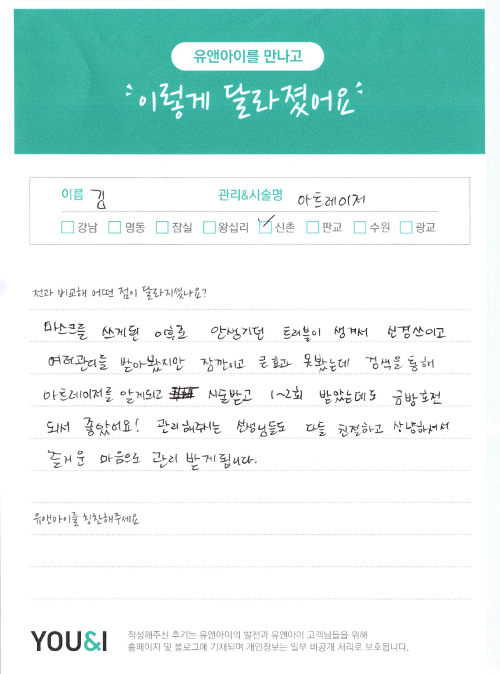 유앤아이를 만나고
이렇게 달라졌어요
이름 김 관리&시술명 아트레이저
강남 명동 잠실 왕십리 신촌 판교 수원 광교
전과 비교해 어떤 점이 달라지셨나요?
마스크를 쓰게된 이후로 안생기던 트러블이 생겨서 신경쓰이고
여러관리를 받아봤지만 잠깐이고 큰효과 못봤는데 검색을 통해
아트레이저를 알게되고 시술받고 1~2회 받았는데도 금방호전
되서 좋았어요! 관리해주시는 선생님들도 다들 친절하고 상냥하셔서
즐거운 마음으로 관리 받게됩니다.
유앤아이를 칭찬해주세요
YOU&I 작성해주신 후기는 유앤아이의 발전과 유앤아이 고객님들을 위해
홈페이지 및 블로그에 기재되며 개인정보는 일부 비공개 처리로 보호됩니다.